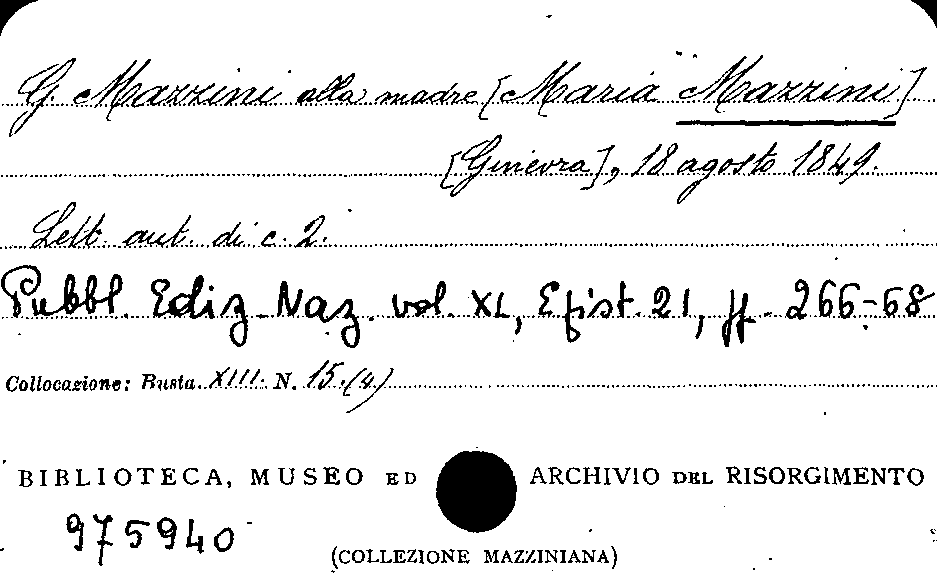 G. Mazzini alla madre [Maria Mazzini]
[Ginevra], 18 agosto 1849.
Lett. aut. di c. 2.
Pubbl. Ediz. Naz. vol. XL, Epist. 21, pp. 266-68
Collocazione: Busta XIII. N. 15.(4)
BIBLIOTECA, MUSEO ED ARCHIVIO DEL RISORGIMENTO
975940
(COLLEZIONE MAZZINIANA)